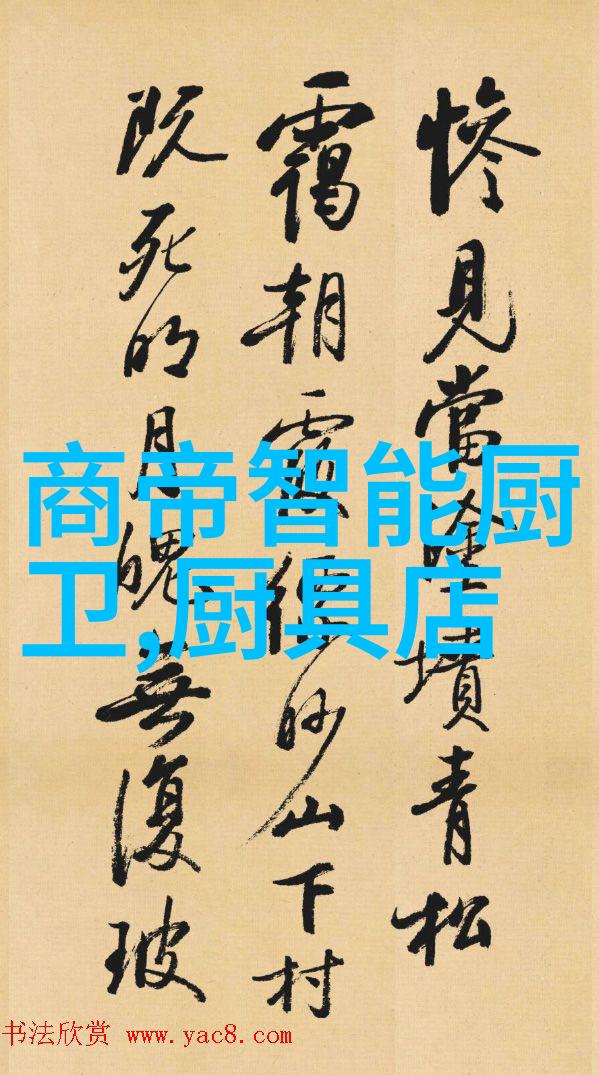 惨見當塗墳青松
靄朝霞縹眇山下村
既死明月魄無復玻
商帝智能厨
卫,厨具店
书法欣赏 www.yac8.com